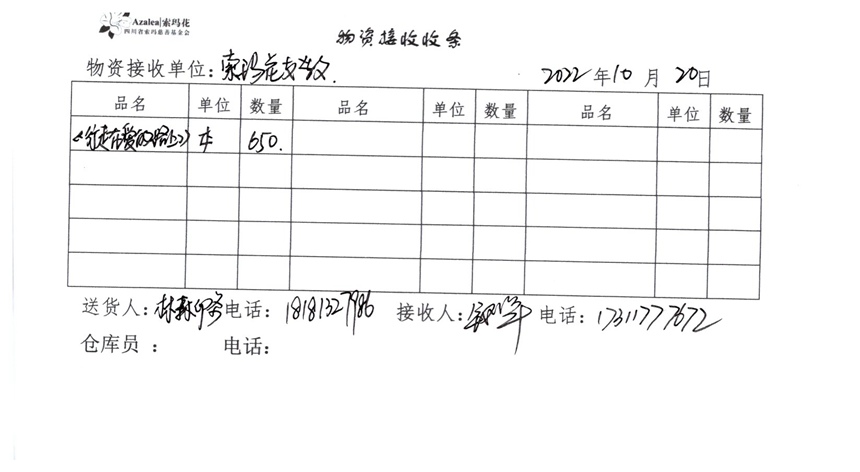 Azalea|索玛花
四川省索玛慈善基金会
物资接收收条
物资接收单位：索玛花支教. 2022年10月20日
品名 单位 数量 品名 单位 数量 品名 单位 数量
《行走在爱的路上》 本 650.
送货人： 电话：18181327986 接收人： 电话：17311777672
仓库员： 电话：